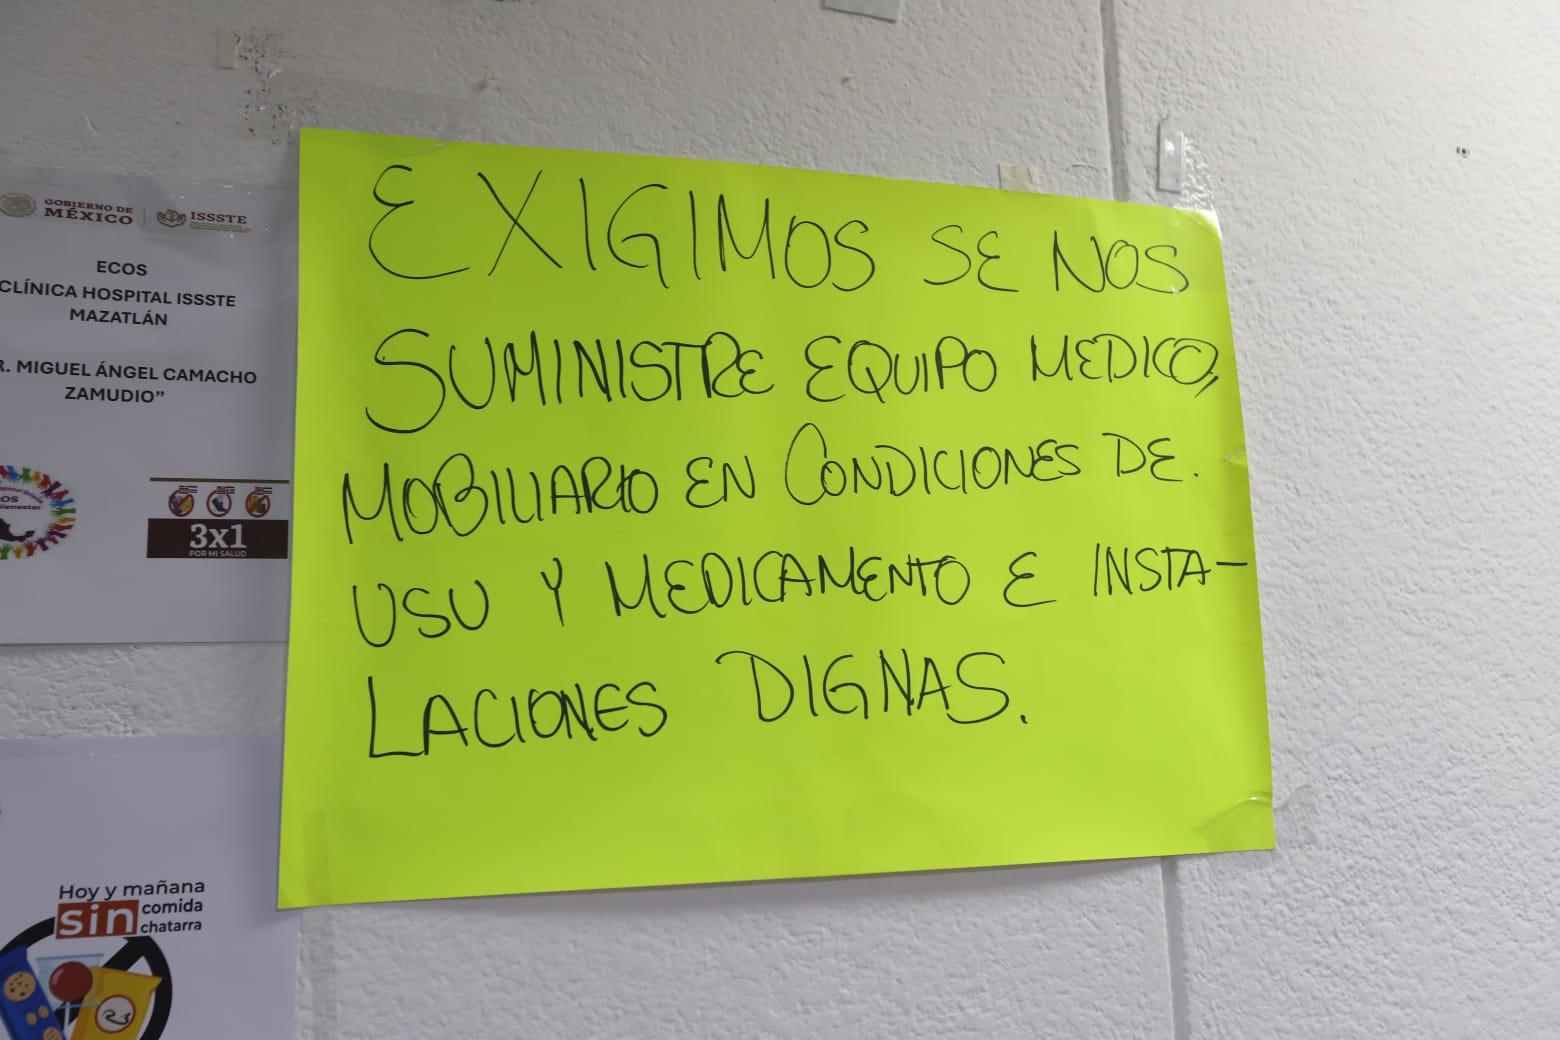 EXIGIMOS SE NOS
SUMINISTRE EQUIPO MEDICO,
MOBILIARIO EN CONDICIONES DE.
USU Y MEDICAMENTO E INSTA-
LACIONES DIGNAS.
GOBIERNO DE
MÉXICO
ISSSTE
ECOS
CLÍNICA HOSPITAL ISSSTE
MAZATLÁN
R. MIGUEL ÁNGEL CAMACHO
ZAMUDIO”
3x1
POR MI SALUD
Hoy y mañana
sin comida
chatarra